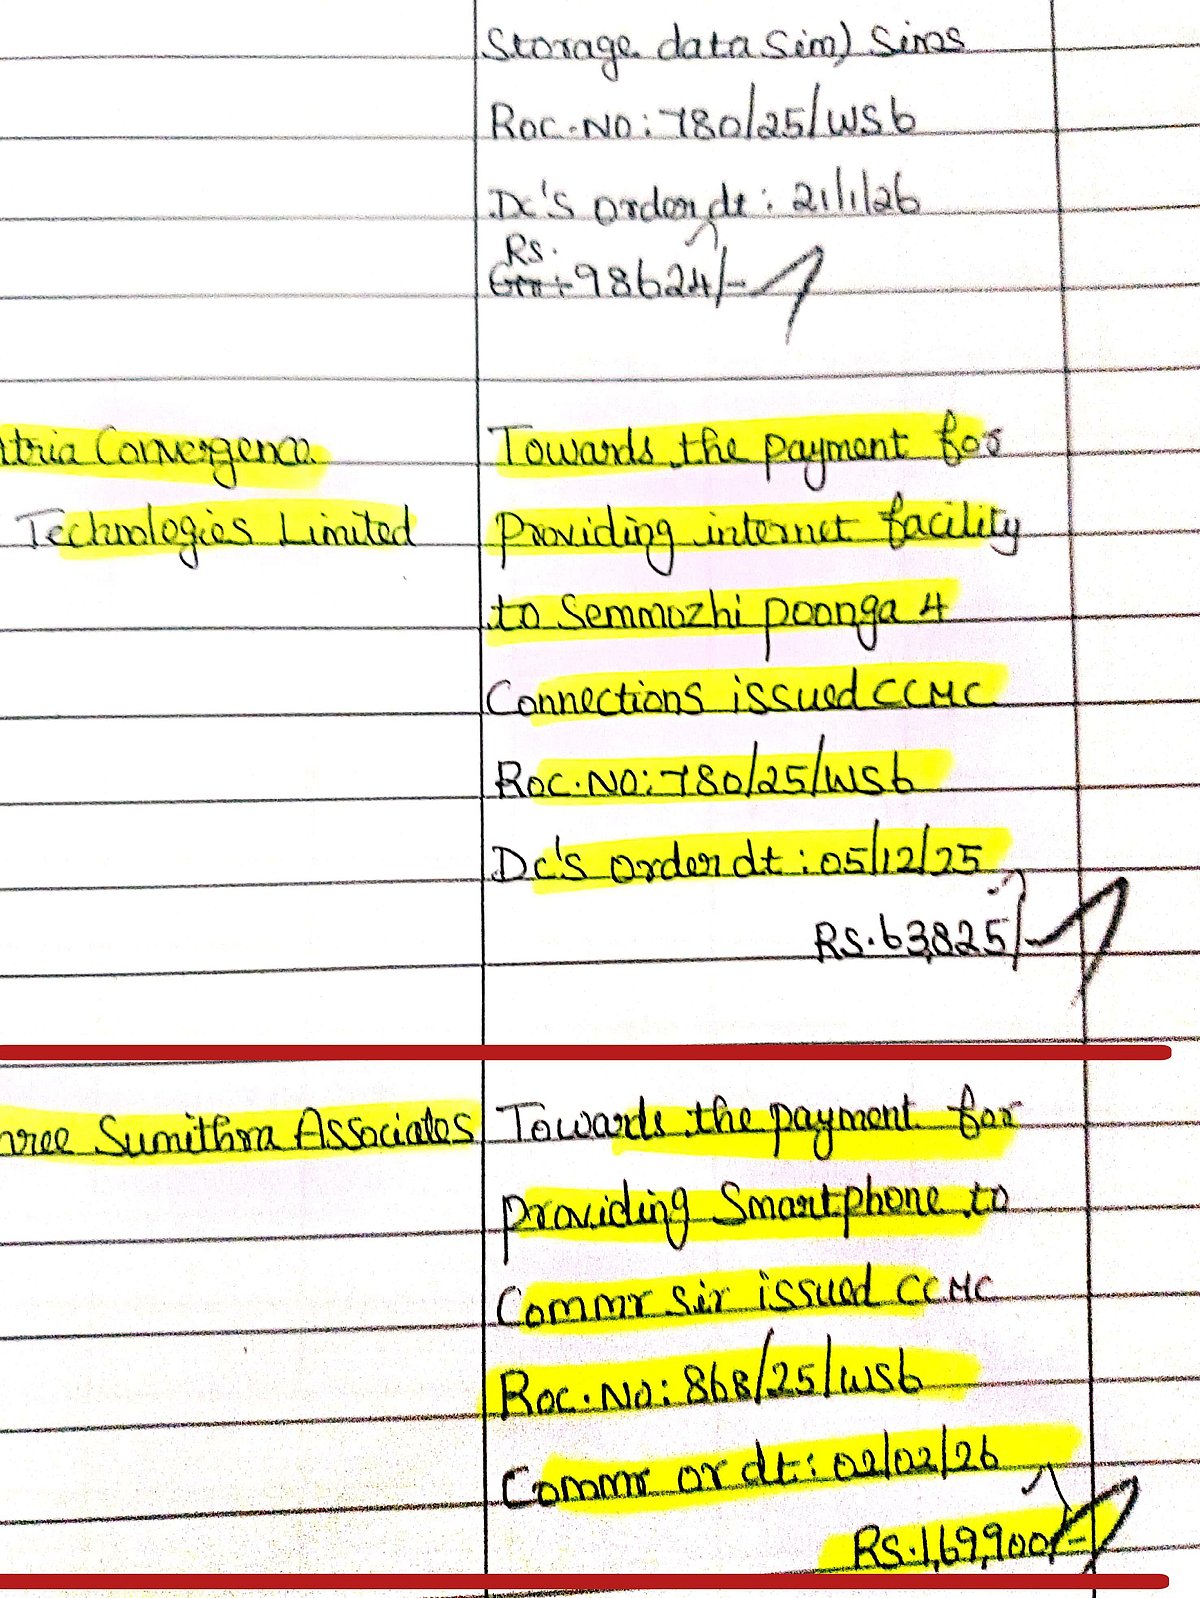 Storage data Sim) Sims
Roc.No: 780/25/WS6
Dc's order dt: 21/1/26
Rs.
98624/-
tria Convergence
Technologies Limited
Towards the payment for
Providing internet facility
to Semmozhi poonga 4
Connections issued CCMC
Roc.No: 780/25/WS6
Dc's order dt: 05/12/25
Rs. 63,825/-
hree Sumithra Associates
Towards the payment for
providing Smartphone to
Commr sir issued CCMC
Roc.No: 868/25/WS6
Commr or dt: 02/02/26
Rs. 1,69,900/-